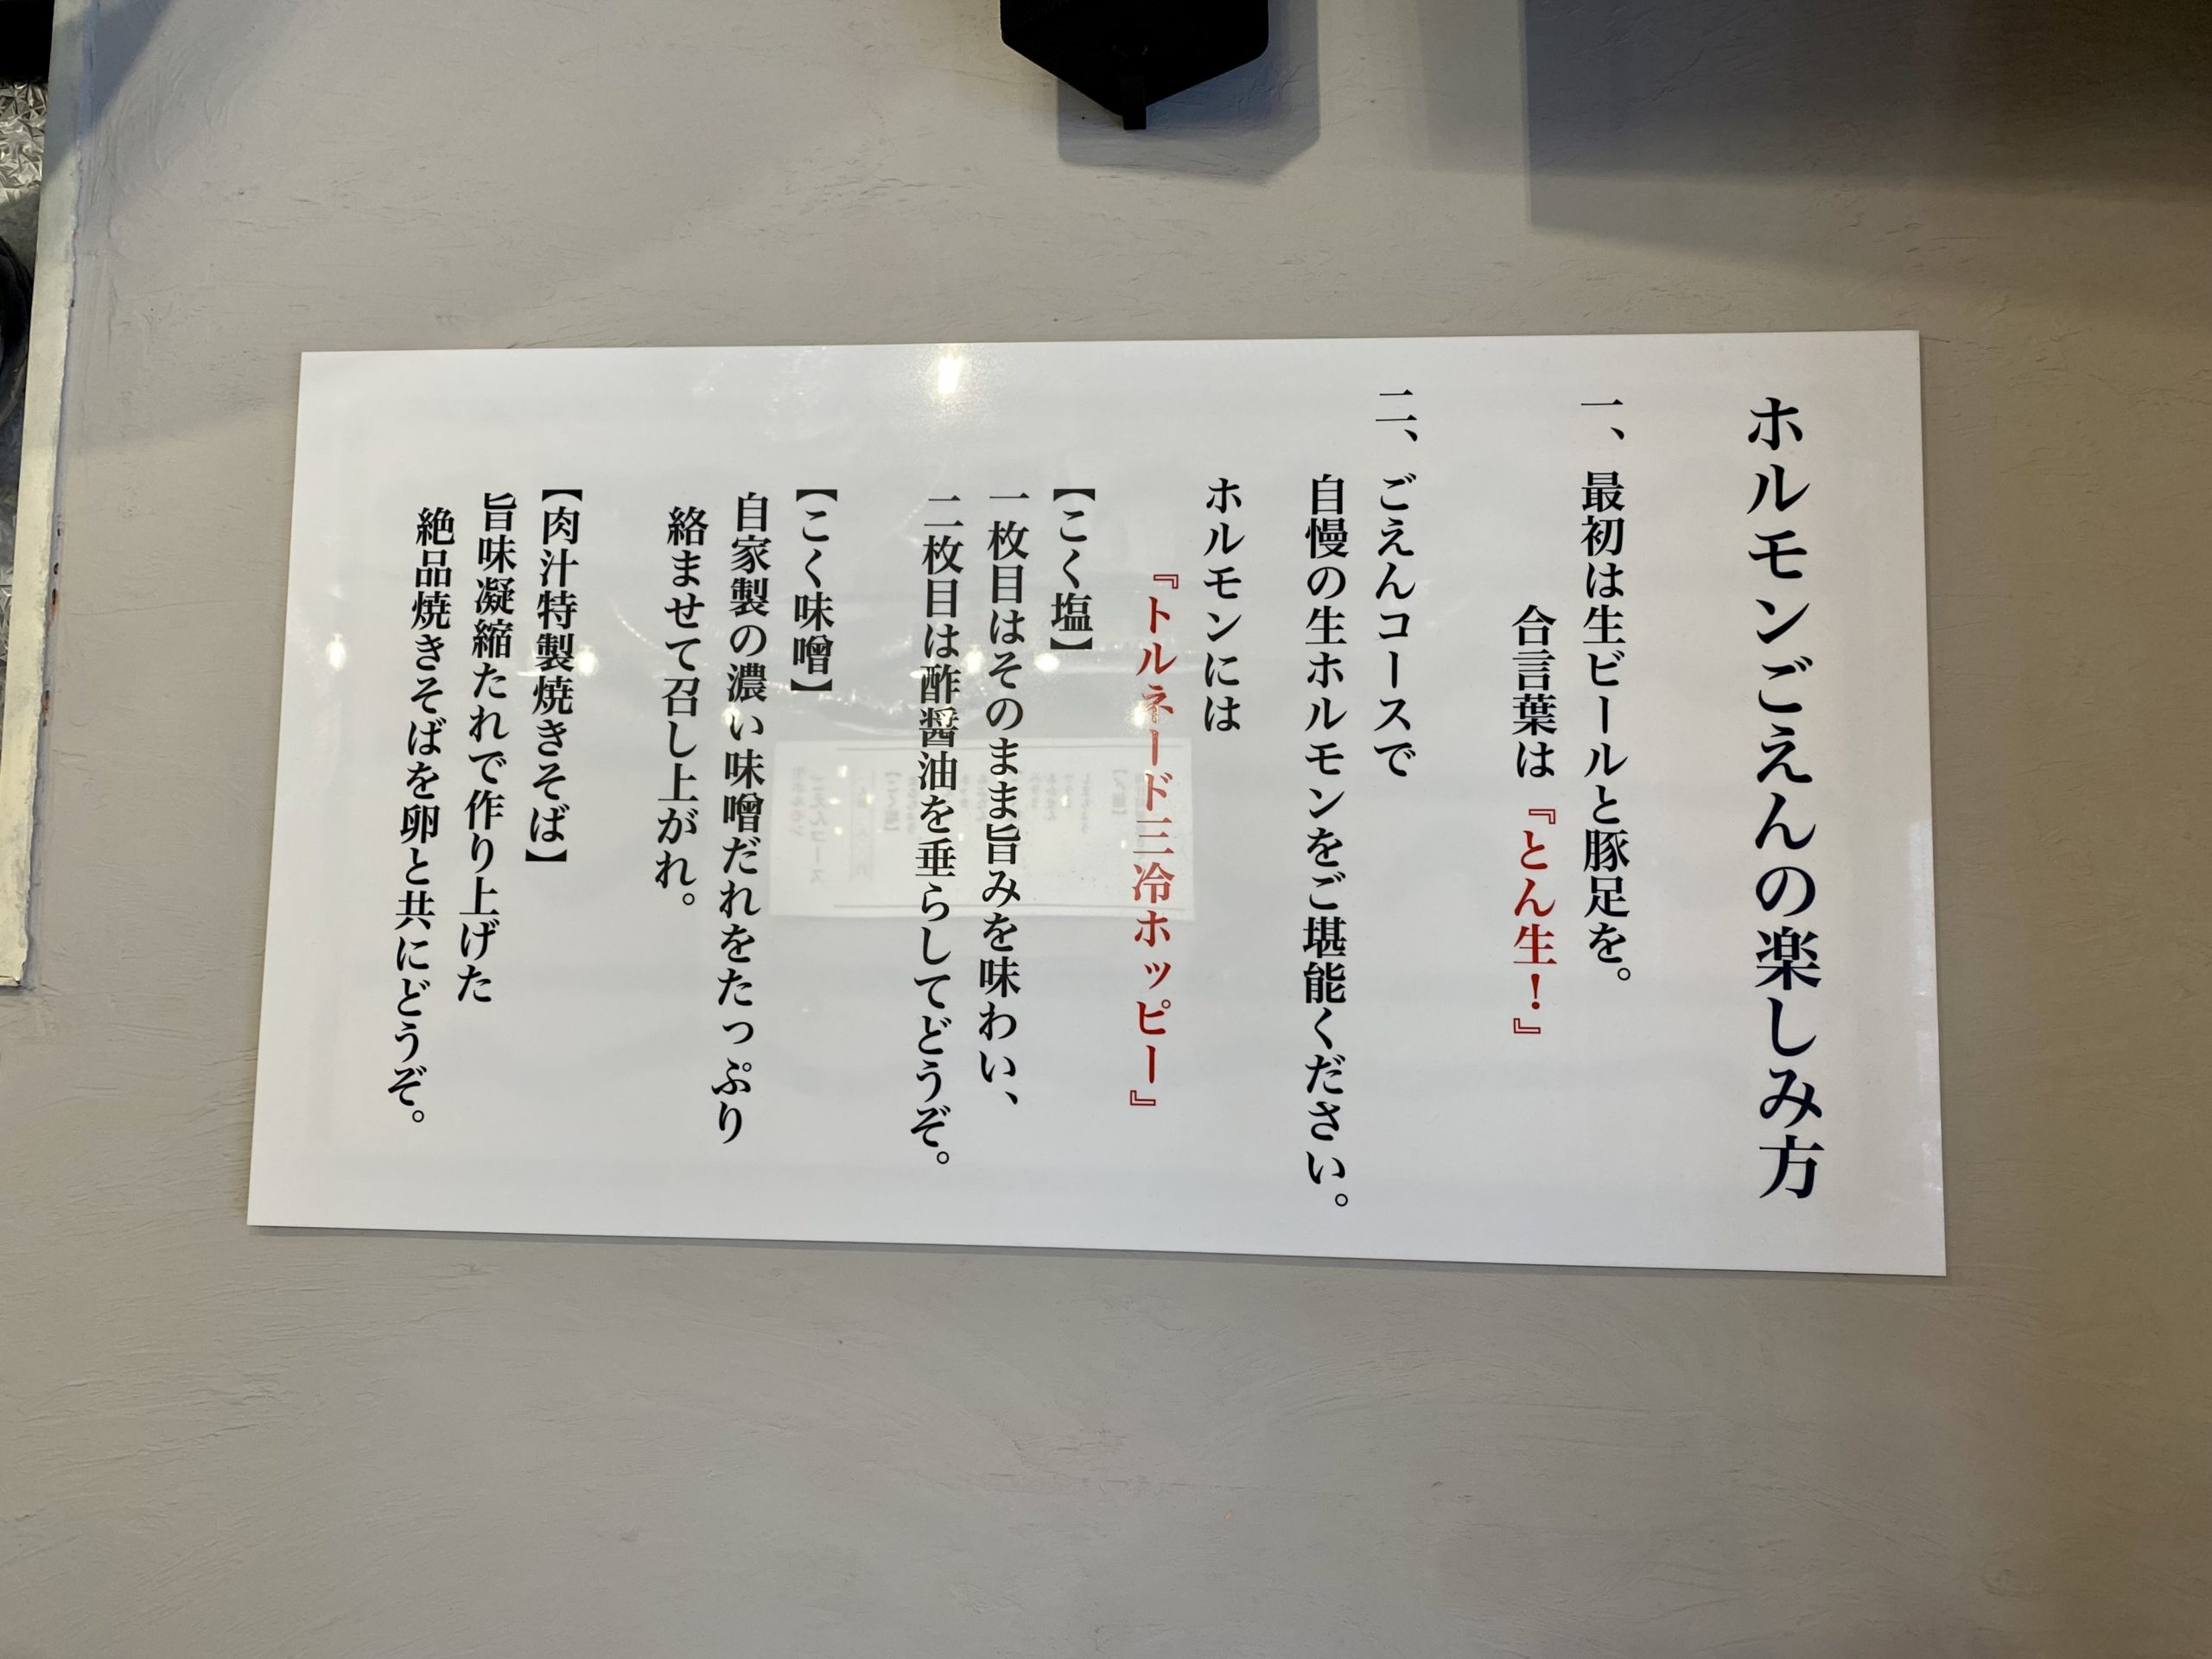 ホルモンごえんの楽しみ方
一、最初は生ビールと豚足を。
合言葉は『とん生！』
二、ごえんコースで
自慢の生ホルモンをご堪能ください。
ホルモンには
『トルネード三冷ホッピー』
【こく塩】
一枚目はそのまま旨みを味わい、
二枚目は酢醤油を垂らしてどうぞ。
【こく味噌】
自家製の濃い味噌だれをたっぷり
絡ませて召し上がれ。
【肉汁特製焼きそば】
旨味凝縮たれで作り上げた
絶品焼きそばを卵と共にどうぞ。